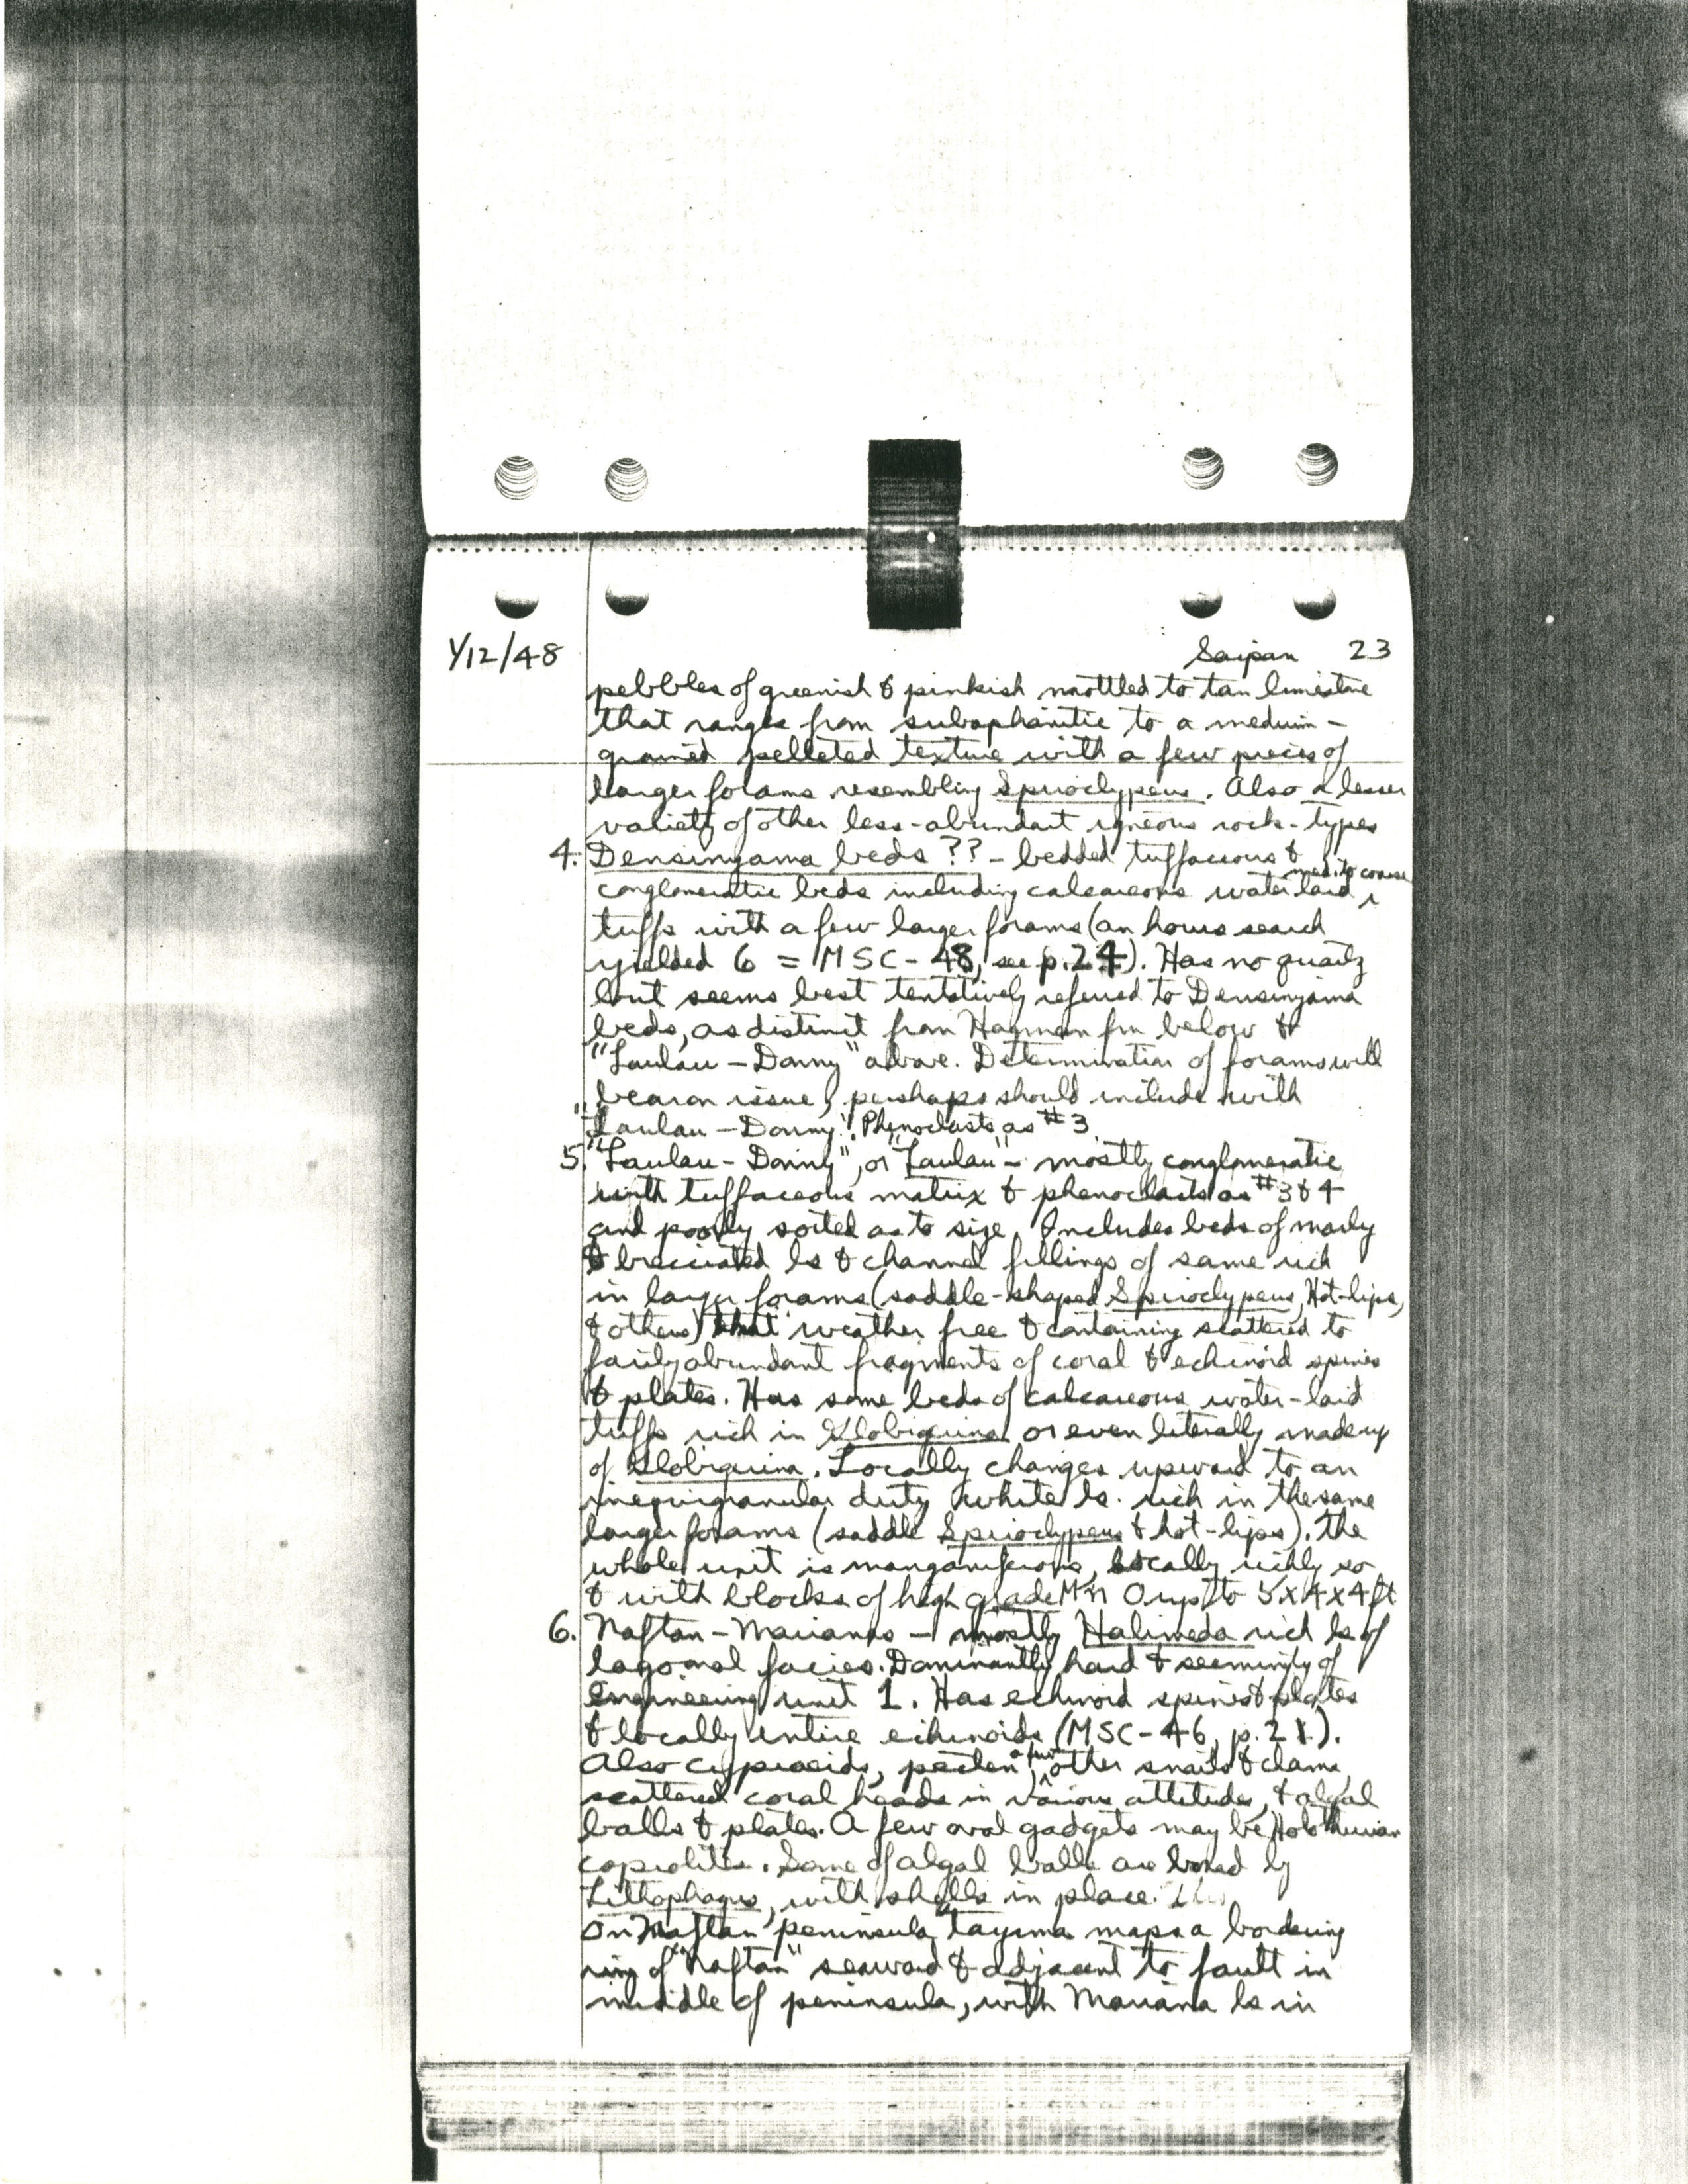 1/12/48
Saipan 23
pebbles of greenish & pinkish mottled to tan limestone
that ranges from subaphanitic to a medium-
grained pelleted texture with a few pieces of
larger forams resembling Spiroclypeus. Also a lesser
variety of other less-abundant igneous rock-types
4. Densinyama beds ?? - bedded tuffaceous &
conglomeratic beds including calcareous water laid, med. to coarse
tuffs with a few larger forams (an hours search
yielded 6 = MSC-48, see p.24). Has no quartz
but seems best tentatively referred to Densinyama
beds, as distinct from Hagman fm below &
"Laulau-Donny" above. Determination of forams will
bear on issue, pershaps should include with
"Laulau-Donny". Phenoclasts as #3.
5. "Laulau-Donny", or "Laulau" - mostly conglomeratic
with tuffaceous matrix & phenoclasts as #3 & 4
and poorly sorted as to size. Includes beds of marly
& brecciated ls & channel fillings of same rich
in larger forams (saddle-shaped Spiroclypeus, Hot-lips,
& others) that weather free & containing scattered to
fairly abundant fragments of coral & echinoid spines
& plates. Has some beds of calcareous water-laid
tuffs rich in Globigerina or even literally made up
of Globigerina. Locally changes upward to an
inequigranular dirty white ls. rich in the same
larger forams (saddle Spiroclypeus & hot-lips). The
whole unit is manganiferous, locally richly so
& with blocks of high grade Mn O up to 5x4x4 ft
6. Naftan-Marianas - mostly Halimeda rich ls of
lagoonal facies. Dominantly hard & seemingly of
Engineering unit 1. Has echinoid spines & plates
& locally entire echinoids (MSC-46, p.21.).
Also cypraeids, pecten, a few other snails & clams,
scattered coral heads in various attitudes, & algal
balls & plates. A few oval gadgets may be Holothurian
coprolites. Some of algal balls are bored by
Lithophagus, with shells in place.
On Naftan peninsula Tayama maps a bordering
ring of "Naftan" seaward & adjacent to fault in
middle of peninsula, with Mariana ls in